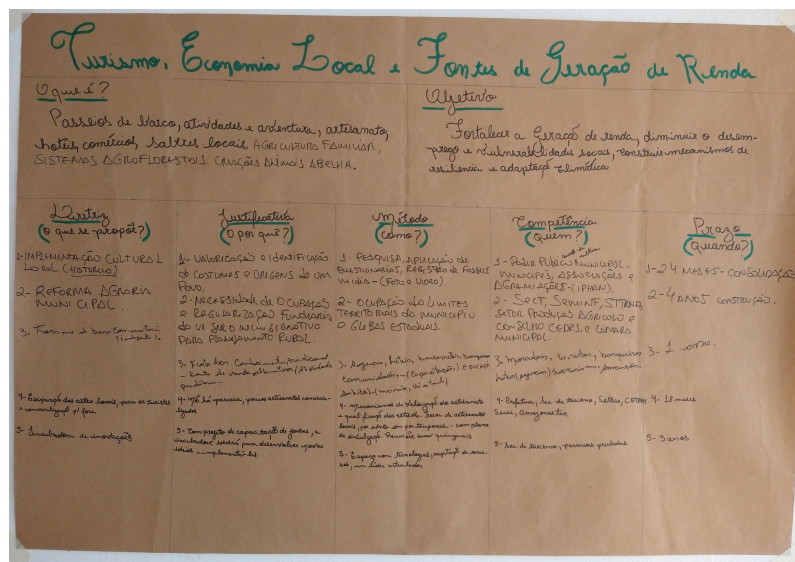 Turismo, Economia Local e Fontes de Geração de Renda
O que é?
Passeios de barco, atividades e aventura, artesanato,
hotéis, comércios, saberes locais, AGRICULTURA FAMILIAR,
SISTEMAS AGROFLORESTAIS. CRIAÇÕES ANIMAIS ABELHA.
Objetivo
Fortalecer a Geração de renda, diminuir o desem-
prego e vulnerabilidades sociais, construir mecanismos de
resiliência e adaptação climática
Diretriz
(O que se propõe?)
1-IMPLEMENTAÇÃO CULTURAL
LOCAL (HISTÓRICO)
2- REFORMA AGRÁRIA
MUNICIPAL.
3. Turismo de base Comunitária
4- Exposição das artes locais, para os turistas
e comercialização p/ fora
5- Incubadora de inovações
Justificativa
(O por quê?)
1- VALORIZAÇÃO E IDENTIFICAÇÃO
DE COSTUMES E ORIGENS DE UM
POVO.
2- NECESSIDADE DE OCUPAÇÃO
E REGULARIZAÇÃO FUNDIÁRIA
PARA PLANEJAMENTO RURAL.
3.
4- Não há parceria, poucos artesanatos comercia-
lizados
5- Com projeto de capacitação de jovens, a
incubadora servirá para desenvolver novas
ideias e implementá-las
Método
(Como?)
1- PESQUISA, APLICAÇÃO DE
QUESTIONÁRIOS, REGISTRO DE
MÍDIA - (FOTO E VÍDEO).
2- OCUPAÇÃO DO LIMITES
TERRITORIAIS DO MUNICÍPIO
E GLEBAS ESTADUAIS.
3.
4- Mecanismos de valorização do artesanato
5- Espaço com tecnologias, captação de recur-
sos, um líder articulador
Competência
(Quem?)
1- PODER PÚBLICO MUNICIPAL.
MUNÍCIPES, ASSOCIAÇÕES E
AGREMIAÇÕES - (IPHAN).
2- SECT, SEMINF, STTRNA,
SETOR PRODUÇÃO AGRÍCOLA E
CONSELHO CEDRS. E CÂMARA
MUNICIPAL.
3- Moradores, turistas,
4- Prefeitura, Sec de turismo, Sebrae,
Senac, Amazonastur
5- Sec de turismo, parcerias privadas
Prazo
(Quando?)
1-24 MESES - CONSOLIDAÇÃO
2-4 ANOS CONSTRUÇÃO.
3- 1 ano.
4- 18 meses
5- 3 anos